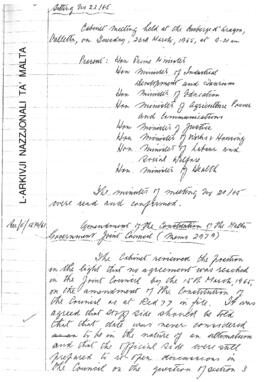 Sitting No 22/65
Cabinet meeting held at the Auberge d'Aragon,
Valletta, on Tuesday, 23rd March, 1965, at 9.30 am
Present: Hon Prime Minister
Hon Minister of Industrial
Development and Tourism
Hon Minister of Education
Hon Minister of Agriculture Power
and Communications
Hon Minister of Justice
Hon Minister of Works & Housing
Hon Minister of Labour and
Social Welfare
Hon Minister of Health
The minutes of meeting No 21/65
were read and confirmed.
Amendment of the Constitution of the Malta
Government Joint Council (Memo 2979)
The Cabinet reviewed the position
in the light that no agreement was reached
in the Joint Council by the 15th March, 1965,
on the amendment of the Constitution of
the Council as at Red 77 in file. It was
agreed that staff side should be told
that that date was never considered
to be in the nature of an ultimatum
and that the official side were still
prepared to open discussions in
the Council on the question of section 3
L-ARKIVJI NAZZJONALI TA' MALTA